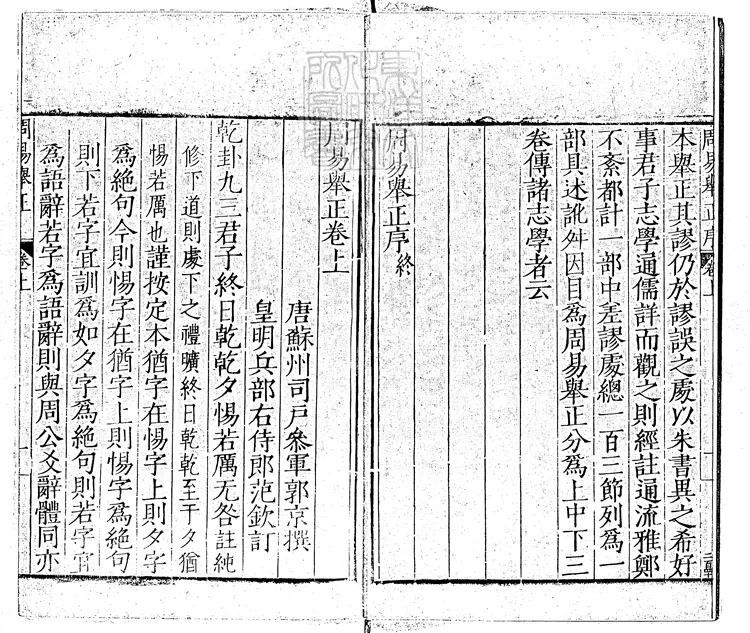 周易舉正序 卷上
本舉正其謬仍於謬誤之處以朱書異之希好
事君子志學通儒詳而觀之則經註通流雅鄭
不紊都計一部中差謬處總一百三節列爲一
部具述訛舛因目爲周易舉正分爲上中下三
卷傳諸志學者云
周易舉正序 終
周易舉正卷上
唐蘇州司戶叅軍郭京撰
皇明兵部右侍郎范欽訂
乾卦九三君子終日乾乾夕惕若厲无咎註純
修下道則處下之禮曠終日乾乾至于夕猶
惕若厲也謹按定本猶字在惕字上則夕字
爲絶句今則惕字在猶字上則惕字爲絶句
則下若字宜訓爲如夕字爲絶句則若字宜
爲語辭若字爲語辭則與周公爻辭體同亦
周易舉正 卷上 一